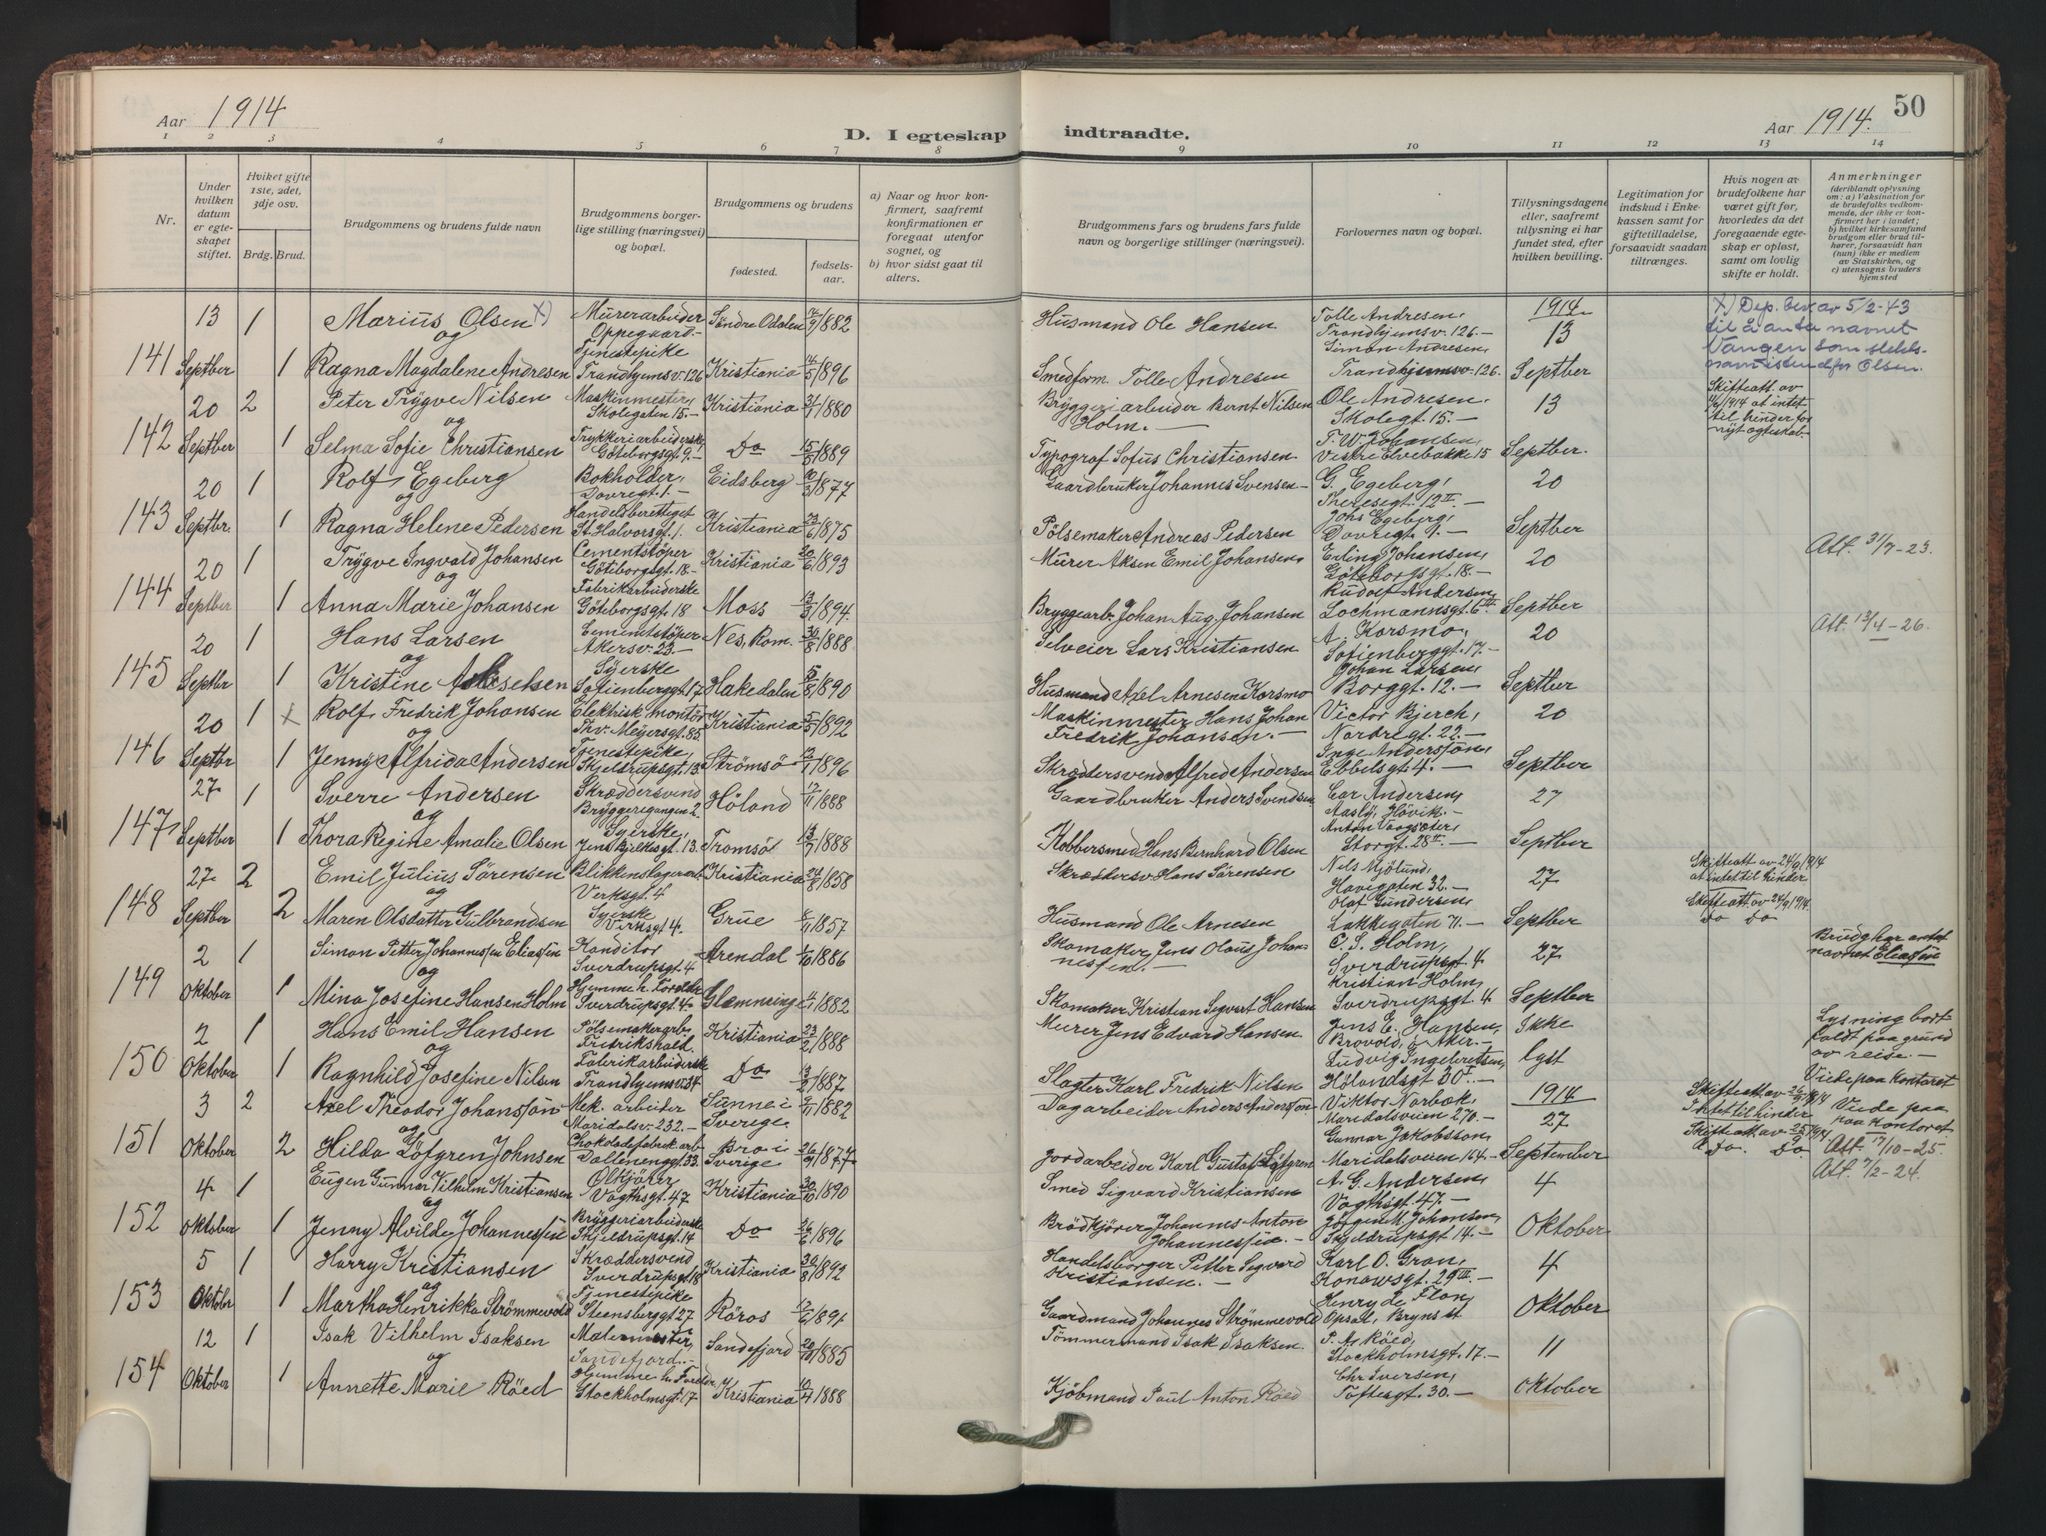 Aar 1914
D. I egteskap
indtraadte.
Aar 1914.
50
1 2 3 4 5 6 7 8 9 10 11 12 13 14
Nr.
Under hvilken datum er egteskapet stiftet.
Hviket gifte 1ste, 2det, 3dje osv.
Brdg. Brud.
Brudgommens og brudens fulde navn
Brudgommens borgerlige stilling (næringsvei) og bopæl.
Brudgommens og brudens
fødested.
fødselsaar.
a) Naar og hvor konfirmert, saafremt konfirmationen er foregaat utenfor sognet, og
b) hvor sidst gaat til alters.
Brudgommens fars og brudens fars fulde navn og borgerlige stillinger (næringsvei).
Forlovernes navn og bopæl.
Tillysningsdagene eller, saafremt tillysning ei har fundet sted, efter hvilken bevilling.
Legitimation for indskud i Enkekassen samt for giftetilladelse, forsaavidt saadan tiltrænges.
Hvis nogen av brudefolkene har været gift før, hvorledes da det foregaaende egteskap er opløst, samt om lovlig skifte er holdt.
Anmerkninger
(deriblandt oplysning om: a) Vaksination for de brudefolks vedkommende, der ikke er konfirmert her i landet; b) hvilket kirkesamfund brudgom eller brud tilhører, forsaavidt han (hun) ikke er medlem av Statskirken, og c) utensogns bruders hjemsted
141 13 Septber 1 Marius Olsen X) Murerarbeider Oppegaard Söndre Odalen 1882 Husmand Ole Hansen Tolle Andresen, Trondhjemsv. 126. — 1914 13
og
1 Ragna Magdalene Andresen Tjenestepike Trondhjemsv. 126 Kristiania 14/5 1896 Smedform. Tolle Andresen Simon Andresen, Trondhjemsv. 126. Septber
X) Dep. bev. av 5/2-43 til å anta navnet Vangen som slekts-navn istendfor Olsen.
142 20 Septber 2 Peter Trygve Nilsen Maskinmester, Skolegaten 15. — Kristiania 1880 Bryggeriarbeider Bernt Nilsen Holm. — Ole Andresen, Skolegt. 15. — 13
og
1 Selma Sofie Christiansen Trykkeriarbeiderske, Göteborgsgt 9. — Do 15/8 1889 Typograf Sofus Christiansen T. W. Johansen, Vestre Elvebakke 15 Septber.
Skifteatt. av 1914 at intet til hinder for nyt egteskab.
143 20 Septbr. 1 Rolf Egeberg Bokholder, Dovregt. 1. — Eidsberg 1877 Gaardbruker Johannes Svensen — G. Egeberg, Theresegt. 12 II. — 20
og
1 Ragna Helene Pedersen Handelsberettiget St. Halvorsgt. 1. Kristiania 1875 Pölsemaker Andreas Pedersen Johs Egeberg, Dovregt. 9. — Septber
144 20 Septber 1 Trygve Ingvald Johansen Cementstöper Göteborgsgt. 18. — Kristiania 20/6 1893 Murer Aksen Emil Johansen Erling Johansen, Göteborgsgt. 18. — 20 Att. 31/7-23.
og
1 Anna Marie Johansen Fabrikarbeiderske Göteborgsgt. 18 Moss 13/3 1894. Bryggearb. Johan Aug. Johansen Rudolf Andersen, Lochmannsgt. 6 III. Septber
145 20 Septbr 1 Hans Larsen Cementstöper Akersv. 23. — Nes, Rom. 30/8 1888 Selveier Lars Kristiansen A. Korsmo, Sofienberggt. 17. — 20 Att. 13/4-26.
og
1 Kristine Akselsen Syerske Sofienberggt. 17 Hakedalen 5/8 1890 Husmand Axel Arnesen Korsmo Johan Larsen, Borggt. 12. — Septber
146 20 Septbr 1 X Rolf Fredrik Johansen Elektrisk montör Thv. Meyersgt. 85. Kristiania 5/5 1892 Maskinmester Hans Johan Fredrik Johansen. — Victor Bjerch, Nordregt. 22. — 20
og
1 Jenny Alfrida Andersen Tjenestepike, Skjeldrupsgt. 13. Strömsö 13/1 1896 Skræddersvend Alfred Andersen Inge Anderssön, Ebbelsgt. 4. — Septber
147 27 Septber 1 Sverre Andersen Skræddersvend Bryggeregangen 2. Höland 17/11 1888 Gaardbruker Anders Svendsen Car Andersen, Aasly, Hövik. — 27
og
1 Thora Regine Amalie Olsen Syerske, Jens Bjelkesgt. 13. Tromsö 13/7 1888 Kobbersmed Hans Bernhard Olsen Anton Vaagsæter, Storgt. 28 II. — Septber
148 27 Septber 2 Emil Julius Sörensen Blikkenslagerarb. Verksgt. 4 Kristiania 24/8 1858 Skræddersv. Hans Sörensen Nils Mjölund, Havegaten 32. — 27 Skifteatt av 24/9 1914 at intet til hinder
og
2 Maren Olsdatter Gulbrandsen Syerske Verksgt 4. Grue 1857 Husmand Ole Arnesen Olaf Gundersen, Lakkegaten 71. — Septber Skifteatt. av 24/9 1914. Do Do
149 2 Oktober 1 Simon Petter Johannessen Eliassen Konditor Sverdrupsgt. 4 Arendal 1/10 1886 Skomaker Jens Olaus Johannessen. — C. S. Holm, Sverdrupsgt. 4 27 Brudg har antat navnet Eliasen
og
1 Mina Josefine Hansen Holm Hjemme h. Foreldre Sverdrupsgt. 4. Glemminge 1882 Skomaker Kristian Sigvert Hansen Kristian Holm, Sverdrupsgt. 4 Septber
150 2 Oktober 1 Hans Emil Hansen Pölsemakerarb. Fredrikshald. Kristiania 23/2 1888 Murer Jens Edvard Hansen Jens E. Hansen, Brovold, Ö. Aker. — Ikke Lysning bort-faldt paa grund av reise. —
og
1 Ragnhild Josefine Nilsen Fabrikarbeiderske Trondhjemsv. 34 Do 13/2 1887 Slagter Karl Fredrik Nilsen Ludvig Ingebretsen, Hölandsgt 30 I. — lyst Viede paa kontoret
151 3 Oktober 2 Axel Theodor Johanssön Mek. arbeider Maridalsv. 232. — Sunne i Sverige 9/11 1882 Dagarbeider Anders Anderssön Viktor Norbæk, Maridalsveien 270. — 1914 27 Skifteatt. av 26/9 1914 Intet til hinder Viede paa kontoret.
og
2 Hilda Löfgren Johnsen Chokoladefabrik arb. Dællenenggt. 33. Bro i Sverige 26/9 1877 Jordarbeider Karl Gustaf Löfgren Gunnar Jakobsson, Maridalsveien 164. — September Skifteatt. av 25/9 1914. Do. Do Att. 17/10-25.
152 4 Oktober 1 Eugen Gunnar Vilhelm Kristiansen Ölkjörer Vogtsgt. 47 Kristiania 30/10 1890 Smed Sigvard Kristiansen A. G. Andersen, Vogtsgt. 47. — 4 Att. 7/2-24.
og
1 Jenny Alvilde Johannessen Bryggeriarbeiderske Skjeldrupsgt. 14 Do 26/6 1896 Brödkjörer Johannes Anton Johannessen. — Jörgen M. Johansen, Skjeldrupsgt. 14. — Oktober
153 5 Oktobr 1 Harry Kristiansen Skræddersvend Sverdrupsgt 18 Kristiania 30/8 1892 Handelsborger Petter Sigvard Kristiansen. — Karl O. Gran, Konowsgt. 29 III. — 4
og
1 Martha Henrikka Strömmevold Tjenestepike Steensberggt 27 Röros 12/6 1891 Gaardmand Johannes Strömmevold Henry de Flon, Opsal, Bryns st. Oktober
154 12 Oktober 1 Isak Vilhelm Isaksen Malermester, Sandefjord. — Sandefjord 20/10 1885 Tömmermand Isak Isaksen. P. A. Röed, Stockholmsgt. 17. — 11
og
1 Annette Marie Röed Hjemme h. Foreldre, Stockholmsgt. 17 Kristiania 10/4 1888 Kjöbmand Paul Anton Röed Chr Iversen, Toftesgt. 30. — Oktober